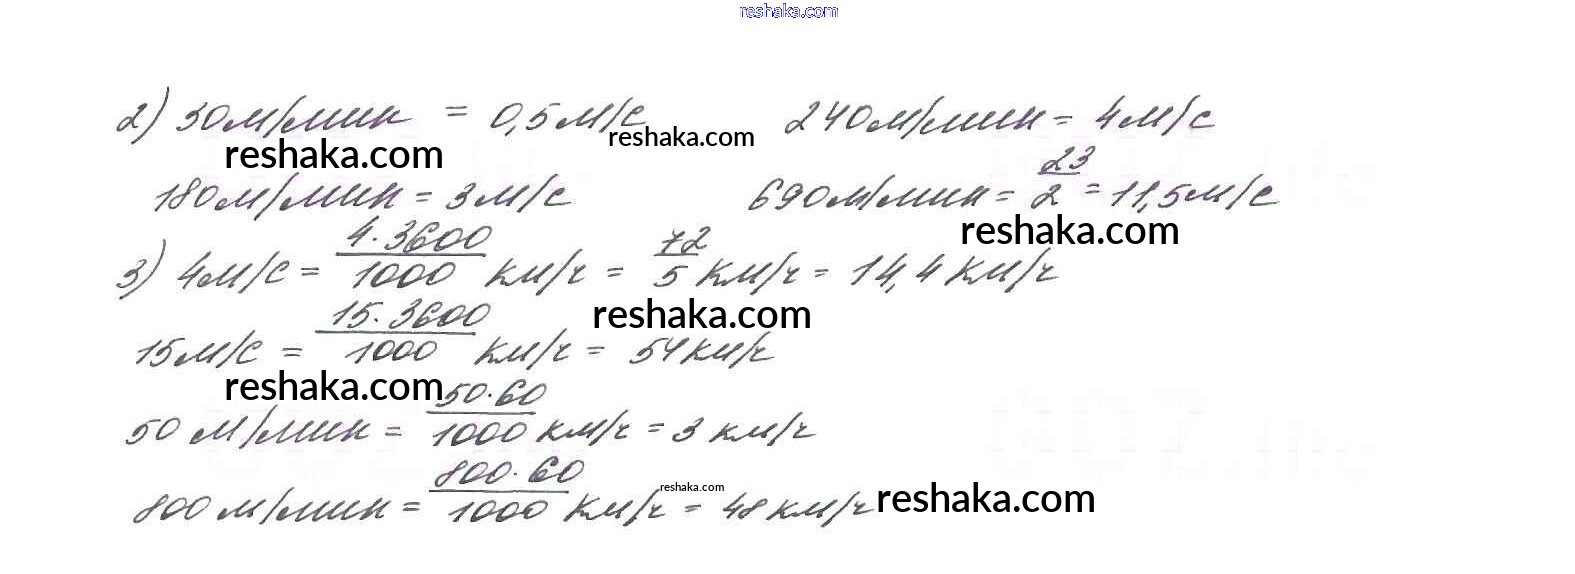 reshaka.com
2) 30м/мин = 0,5м/с 240м/мин = 4м/с
reshaka.com reshaka.com
180м/мин = 3м/с 690м/мин = 23/2 = 11,5м/с
reshaka.com
3) 4м/с = 4·3600/1000 км/ч = 72/5 км/ч = 14,4 км/ч
reshaka.com
15м/с = 15·3600/1000 км/ч = 54км/ч
reshaka.com
50 м/мин = 50·60/1000 км/ч = 3 км/ч
800 м/мин = 800·60/1000 км/ч = 48 км/ч
reshaka.com reshaka.com